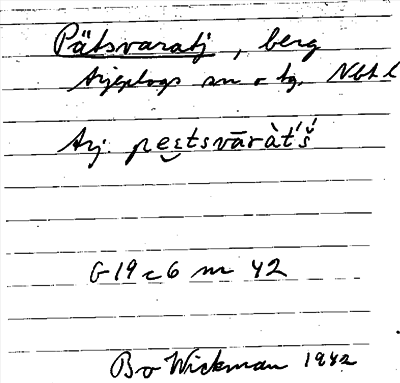 Pätsvaratj, berg
Arjeplogs sn o tg. Nbt l
Arj. pɛɛ̮tsvāràt́š́
G 19 c 6 nr 42
Bo Wickman 1942